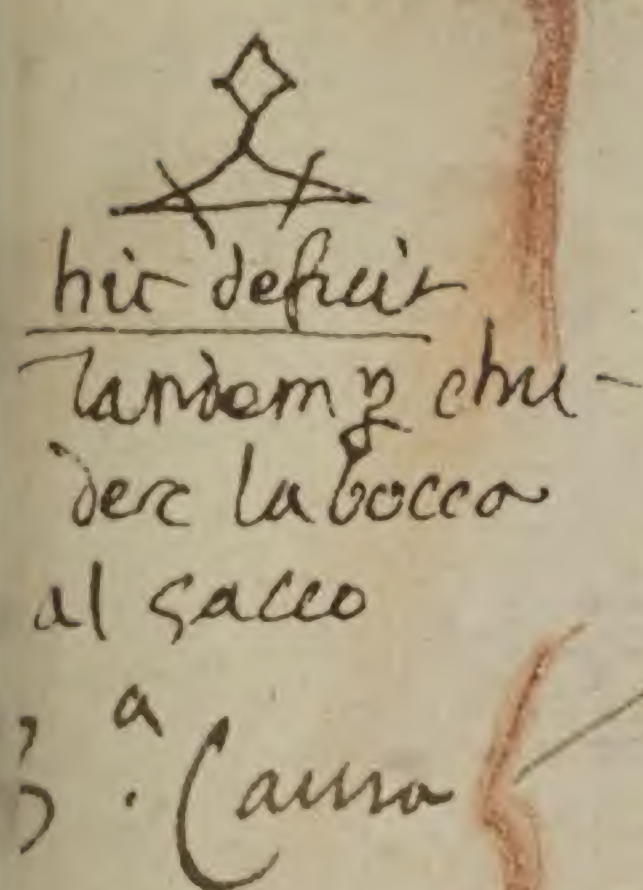 hic deficit
Tandem p chu-
dere la bocca
al sacco
3.ª Causa